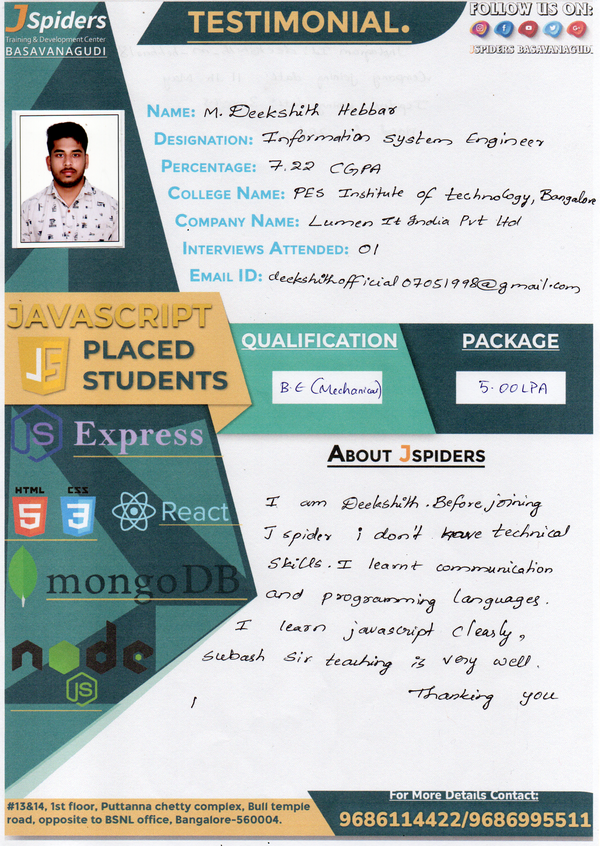 JSpiders
Training & Development Center
BASAVANAGUDI
TESTIMONIAL.
FOLLOW US ON:
JSPIDERS BASAVANAGUDI
NAME: M. Deekshith Hebbar
DESIGNATION: Information System Engineer
PERCENTAGE: 7.22 CGPA
COLLEGE NAME: PES Institute of technology, Bangalore
COMPANY NAME: Lumen It India Pvt ltd
INTERVIEWS ATTENDED: 01
EMAIL ID: deekshithofficial07051998@gmail.com
JAVASCRIPT
JS
PLACED
STUDENTS
QUALIFICATION
B.E (Mechanical)
PACKAGE
5.00LPA
JS Express
HTML CSS
5 3 React
mongoDB
node
JS
ABOUT JSPIDERS
I am Deekshith. Before joining
J spider i don't have technical
skills. I learnt communication
and programming languages.
I learn javascript clearly,
Subash Sir teaching is very well.
Thanking you
#13&14, 1st floor, Puttanna chetty complex, Bull temple
road, opposite to BSNL office, Bangalore-560004.
For More Details Contact:
9686114422/9686995511